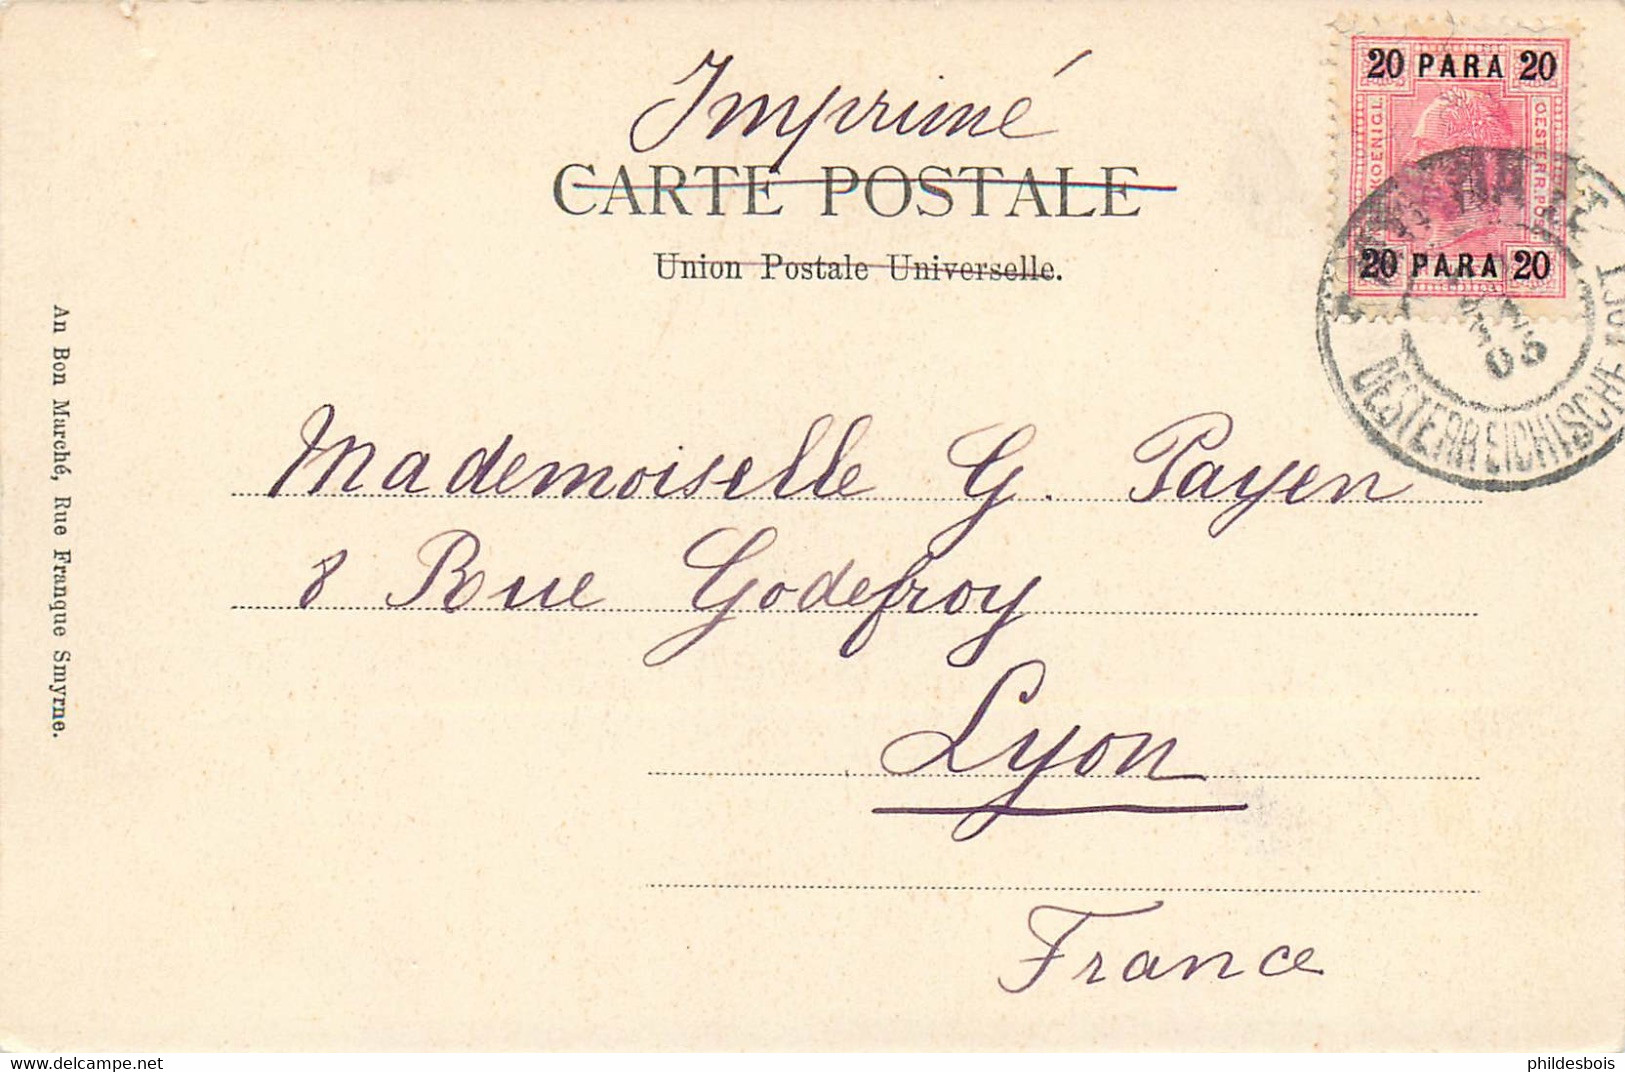 Imprimé
CARTE POSTALE
Union Postale Universelle.
20 PARA 20
KOENIGL.
OESTERR. POST
20 PARA 20
05
OESTERREICHISCHE POST
Mademoiselle G. Payen
8 Rue Godefroy
Lyon
France
An Bon Marché, Rue Franque Smyrne.
delcampe.net
phildesbois